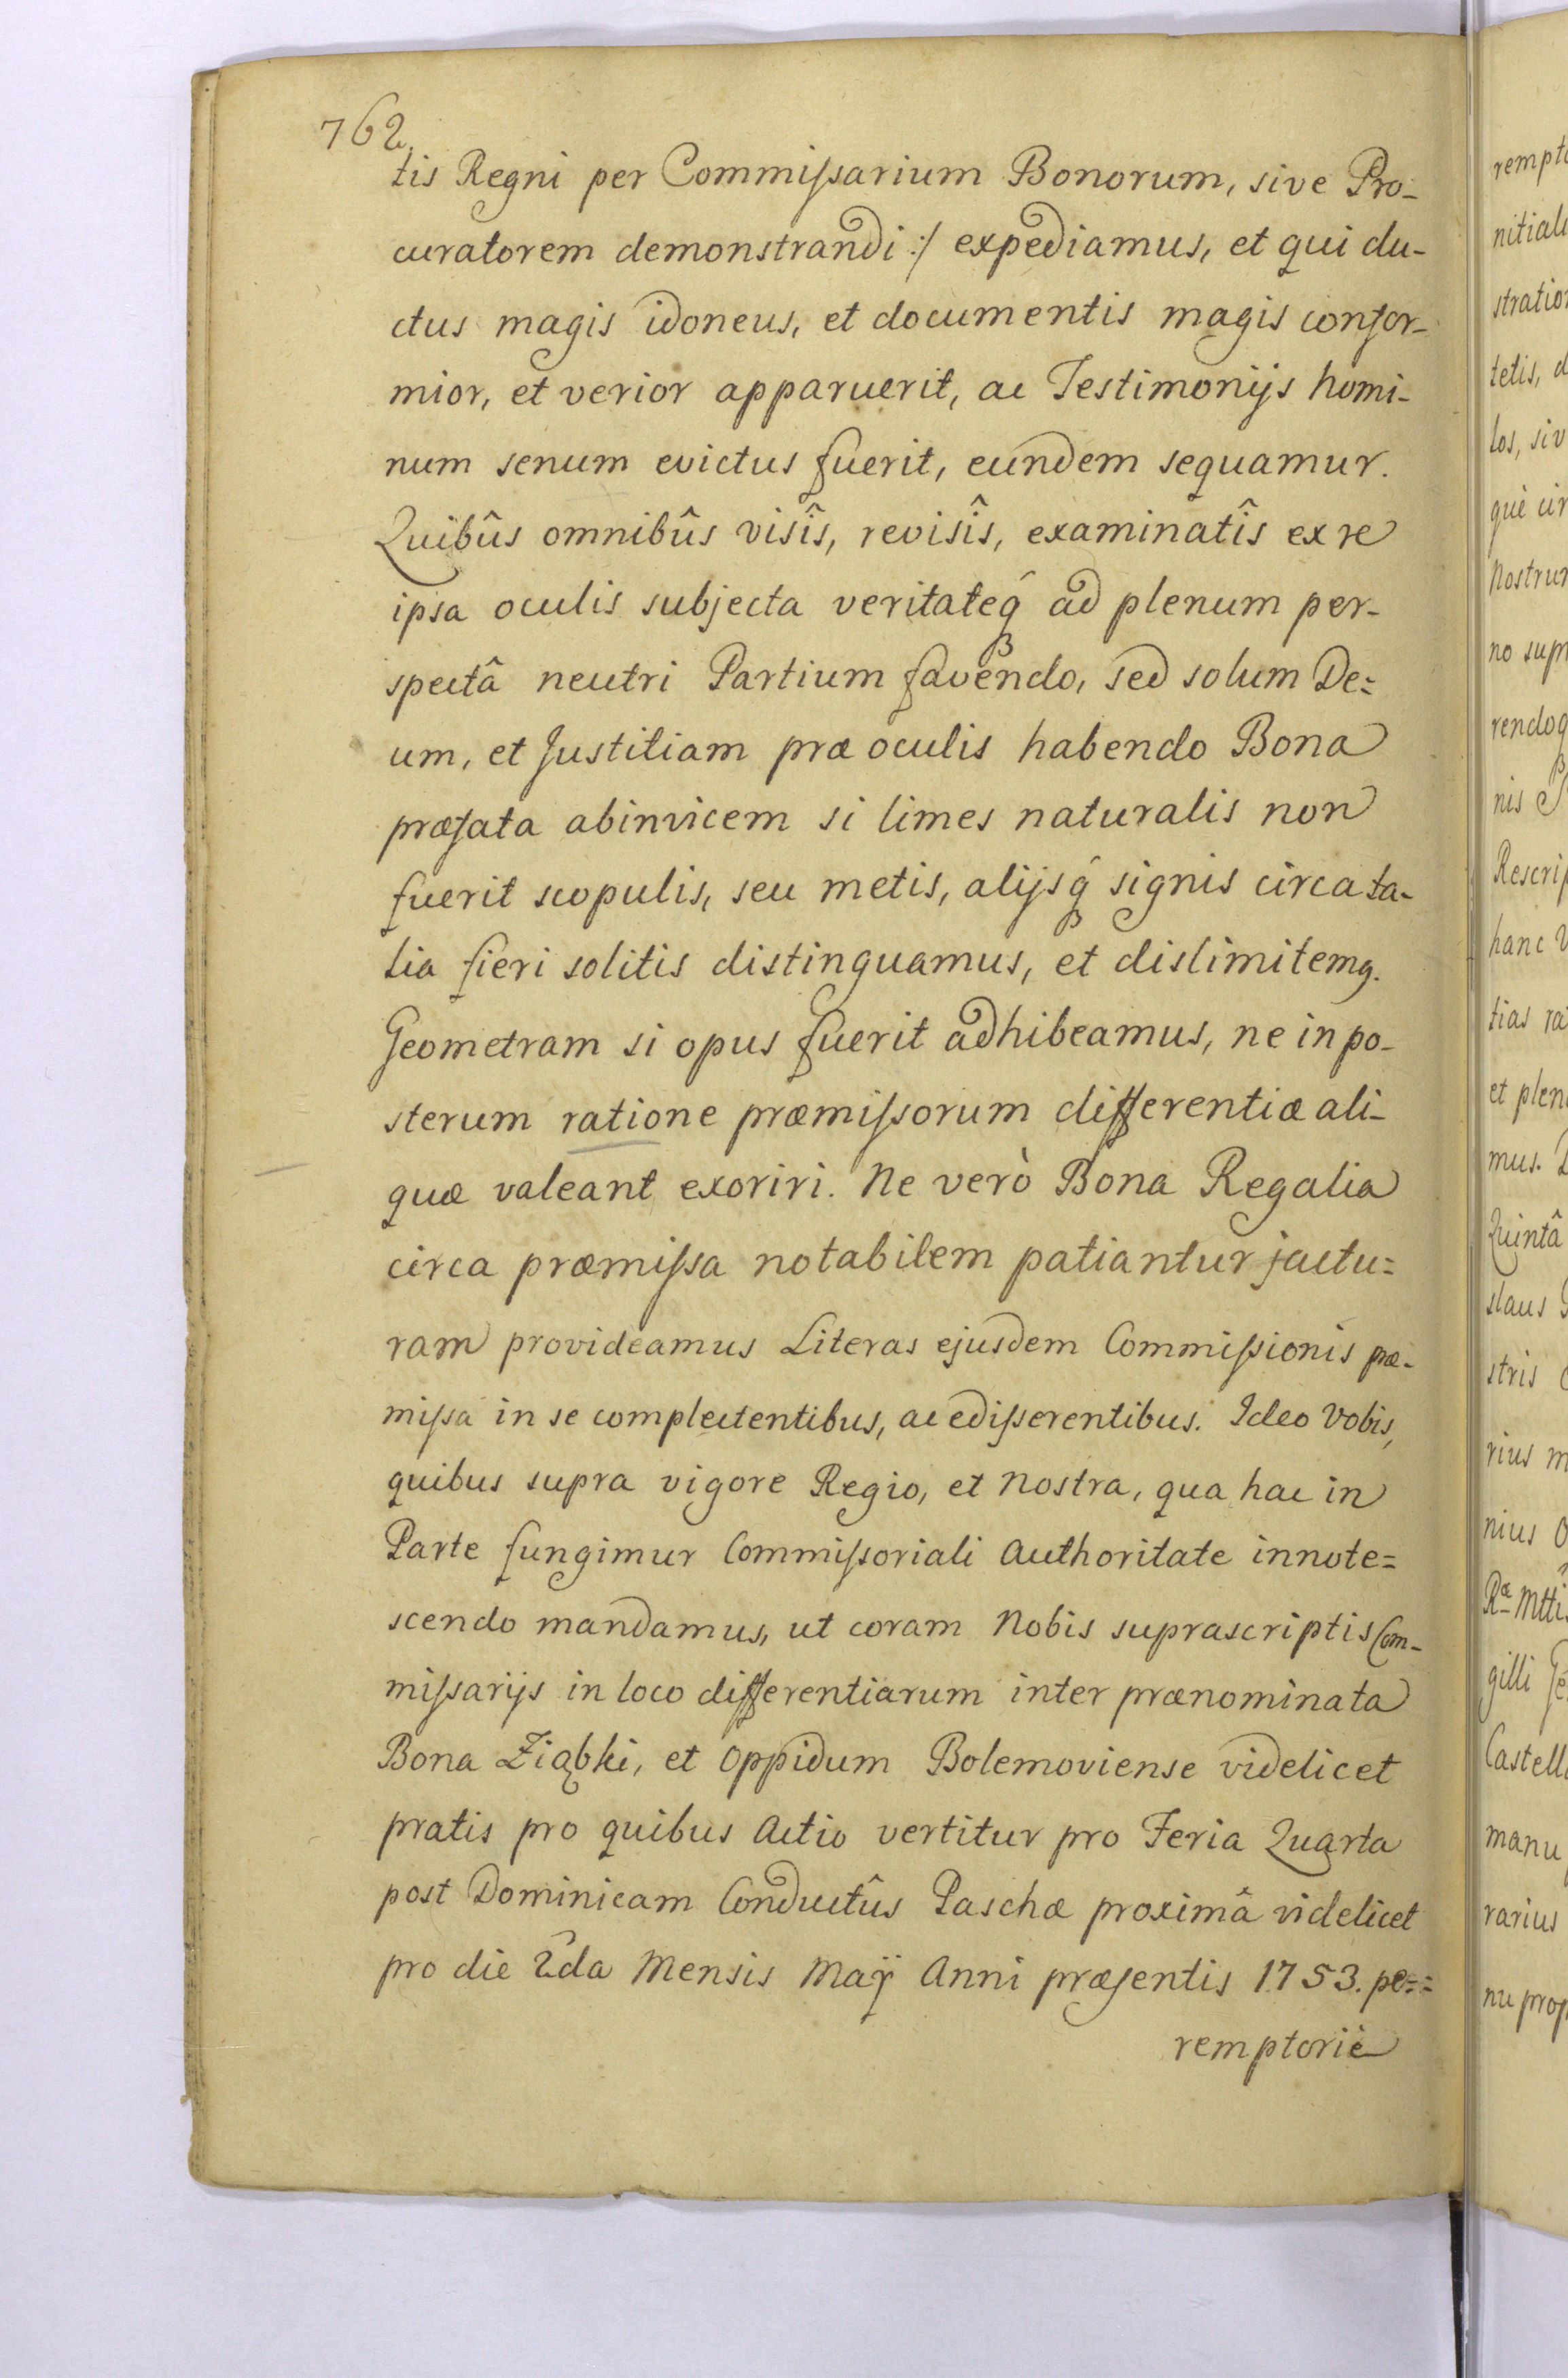 762
tis Regni per Commissarium Bonorum, sive Pro-
curatorem demonstrandi :/ expediamus, et qui du-
ctus magis idoneus, et documentis magis confor-
mior, et verior apparuerit, ac Testimonijs homi-
num senum evictus fuerit, eundem sequamur.
Quibûs omnibûs visîs, revisîs, examinatîs ex re
ipsa oculis subjecta veritateq́ ad plenum per-
spectâ neutri Partium favendo, sed solum De=
um, et Justitiam præ oculis habendo Bona
præfata abinvicem si limes naturalis non
fuerit scopulis, seu metis, alijsq́ signis circa ta-
lia fieri solitis distinguamus, et dislimitemq.
Geometram si opus fuerit adhibeamus, ne in po-
sterum ratione præmissorum differentiæ ali-
quæ valeant exoriri. Ne verò Bona Regalia
circa præmissa notabilem patiantur jactu=
ram provideamus Literas ejusdem Commissionis præ-
missa in se complectentibus, ac edisserentibus. Ideo Vobis,
quibus supra vigore Regio, et Nostra, qua hac in
Parte fungimur Commissoriali Authoritate innote=
scendo mandamus, ut coram Nobis suprascriptis Com-
missarijs in loco differentiarum inter prænominata
Bona Ziąbki, et Oppidum Bolemoviense videlicet
pratis pro quibus Actio vertitur pro Feria Quarta
post Dominicam Conductûs Paschæ proximâ videlicet
pro die 2da Mensis Maÿ Anni præsentis 1753. pe==
remptoriè
rempto
nitiali
stration
tetis, d
los, siv
què cir
Nostrum
no supr
rendoq
nis
Rescrip
hanc V
tias ra
et plen
mus.
Quintâ
slaus
stris
rius m
nius O
Ræ Mtti
gilli
Castell
manu
rarius
nu prop